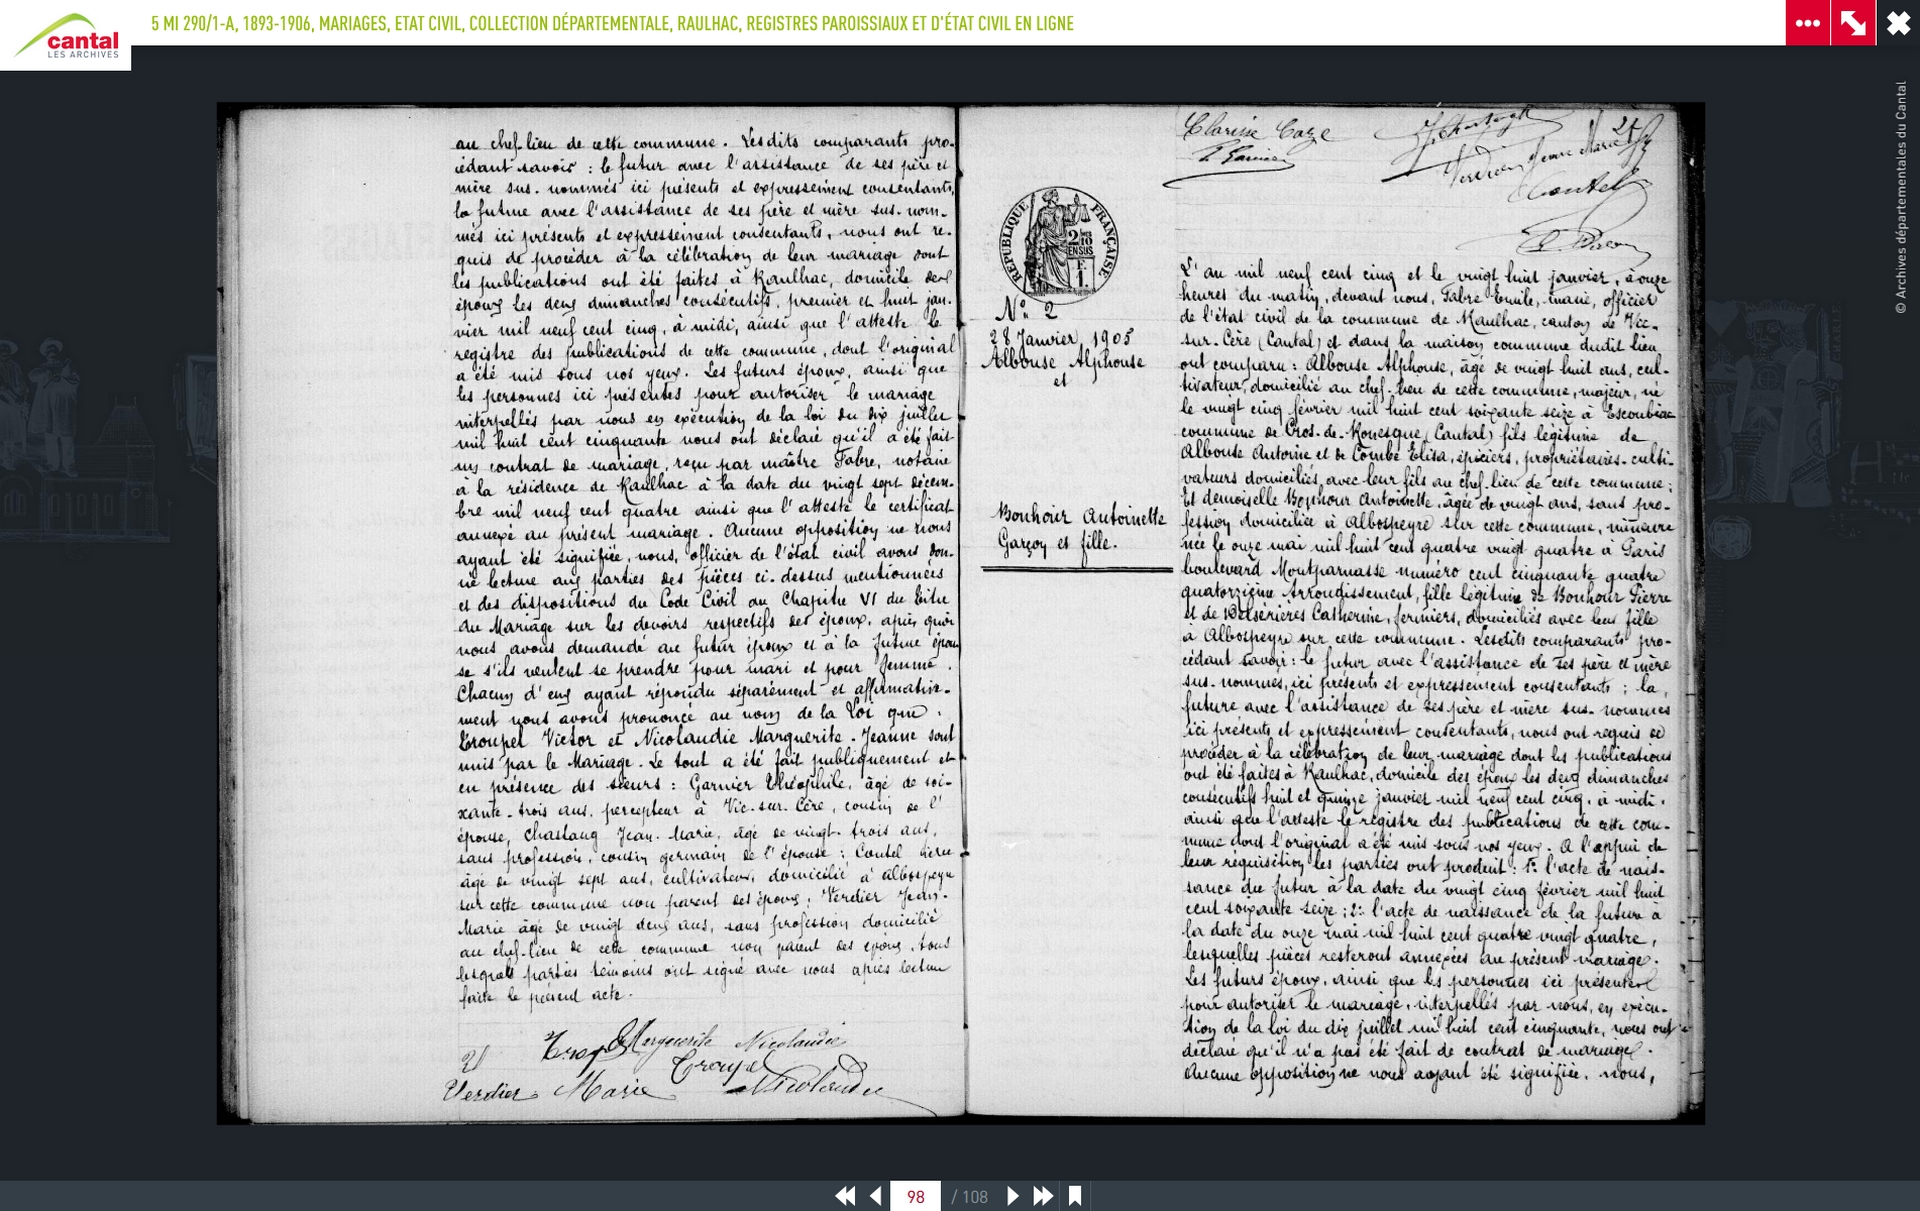 cantal
LES ARCHIVES
5 MI 290/1-A, 1893-1906, MARIAGES, ETAT CIVIL, COLLECTION DÉPARTEMENTALE, RAULHAC, REGISTRES PAROISSIAUX ET D'ÉTAT CIVIL EN LIGNE
© Archives départementales du Cantal
au chef-lieu de cette commune. Lesdits comparants pro-
cédant savoir : le futur avec l'assistance de ses père et
mère sus-nommés ici présents et expressément consentants,
la future avec l'assistance de ses père et mère sus-nom-
més ici présents et expressément consentants, nous ont re-
quis de procéder à la célébration de leur mariage dont
les publications ont été faites à Raulhac, domicile des
époux les deux dimanches consécutifs, premier et huit jan-
vier mil neuf cent cinq, à midi, ainsi que l'atteste le
registre des publications de cette commune, dont l'original
a été mis sous nos yeux. Les futurs époux, ainsi que
les personnes ici présentes pour autoriser le mariage
interpellés par nous en exécution de la loi du dix juillet
mil huit cent cinquante nous ont déclaré qu'il a été fait
un contrat de mariage, reçu par maître Fabre, notaire
à la résidence de Raulhac à la date du vingt sept décem-
bre mil neuf cent quatre ainsi que l'atteste le certificat
annexé au présent mariage. Aucune opposition ne nous
ayant été signifiée, nous, officier de l'état civil avons don-
né lecture aux parties des pièces ci-dessus mentionnées
et des dispositions du Code Civil au Chapitre VI du Titre
du Mariage sur les devoirs respectifs des époux, après quoi
nous avons demandé au futur époux et à la future épou
se s'ils veulent se prendre pour mari et pour femme.
Chacun d'eux ayant répondu séparément et affirmative-
ment nous avons prononcé au nom de la Loi que :
Troupel Victor et Nicolaudie Marguerite-Jeanne sont
unis par le Mariage. Le tout a été fait publiquement et
en présence des sieurs : Garnier Théophile, âgé de soi-
xante-trois ans, percepteur à Vic-sur-Cère, cousin de l'
épouse, Chastang Jean-Marie, âgé de vingt-trois ans,
sans profession, cousin germain de l'épouse ; Coutel
âgé de vingt sept ans, cultivateur, domicilié à Albospeyre
sur cette commune non parent des époux ; Verdier Jean-
Marie âgé de vingt deux ans, sans profession domicilié
au chef-lieu de cette commune non parent des époux. tous
lesquels parties témoins ont signé avec nous après lecture
faite le présent acte.
Marguerite Nicolaudie
Troupel
Verdier Marie Nicolaudie
Clarisse Caze
Verdier Jean Marie
Coutel
RÉPUBLIQUE FRANÇAISE
2/10
EN SUS
F.
1.
Nº 2
28 Janvier, 1905
Albouse Alphonse
et
Bouhour Antoinette
Garçon et fille.
L'an mil neuf cent cinq et le vingt huit janvier, à onze
heures du matin, devant nous, Fabre Emile, maire, officier
de l'état civil de la commune de Raulhac, canton de Vic-
sur-Cère (Cantal) et dans la maison commune dudit lieu
ont comparu : Albouse Alphonse, âgé de vingt huit ans, cul-
tivateur, domicilié au chef-lieu de cette commune, majeur, né
le vingt cinq février mil huit cent soixante seize à Escoubiac
commune de Cros-de-Ronesque (Cantal) fils légitime de
Albouse Antoine et de Combe Elisa, épiciers, propriétaires-culti-
vateurs domiciliés, avec leur fils au chef-lieu de cette commune ;
Et demoiselle Bouhour Antoinette, âgée de vingt ans, sans pro-
fession domiciliée à Albospeyre sur cette commune, mineure
née le onze mai mil huit cent quatre vingt quatre à Paris
boulevard Montparnasse numéro cent cinquante quatre
quatorzième Arrondissement, fille légitime de Bouhour Pierre
et de Delserières Catherine, fermiers, domiciliés avec leur fille
à Albospeyre sur cette commune. Lesdits comparants pro-
cédant savoir : le futur avec l'assistance de ses père et mère
sus-nommés, ici présents et expressément consentants ; la
future avec l'assistance de ses père et mère sus-nommés
ici présents et expressément consentants, nous ont requis de
procéder à la célébration de leur mariage dont les publications
ont été faites à Raulhac, domicile des époux les deux dimanches
consécutifs huit et quinze janvier mil neuf cent cinq, à midi,
ainsi que l'atteste le registre des publications de cette com-
mune dont l'original a été mis sous nos yeux. A l'appui de
leur réquisition les parties ont produit : 1º l'acte de nais-
sance du futur à la date du vingt cinq février mil huit
cent soixante seize ; 2º l'acte de naissance de la future à
la date du onze mai mil huit cent quatre vingt quatre,
lesquelles pièces resteront annexées au présent mariage.
Les futurs époux, ainsi que les personnes ici présentes
pour autoriser le mariage, interpellés par nous, en exécu-
tion de la loi du dix juillet mil huit cent cinquante, nous ont
déclaré qu'il n'a pas été fait de contrat de mariage.
Aucune opposition ne nous ayant été signifiée, nous,
98 / 108